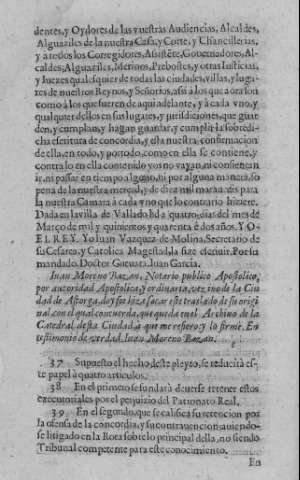 dentes, y Oydores de las nuestras Audiencias, Alcaldes,
Alguaziles de la nuestra Casa, y Corte, y Chancillerias,
y a todos los Corregidores, Assistẽte, Governadores, Al-
caldes, Alguaziles, Merinos, Prebostes, y otras Iusticias,
y Iuezes qualesquier de todas las ciudades, villas, y luga-
res de nuestros Reynos, y Señorios, assi à los que aora son
como à los que fueren de aqui adelante, y à cada vno, y
qualquier dellos en sus lugares, y jurisdiciones, que guar
den, y cumplan, y hagan guardar, y cumplir la sobredi-
cha escritura de concordia, y esta nuestra confirmacion
de ella, en todo, y por todo, como en ella se contiene, y
contra lo en ella contenido no vayan, ni consientan
ir, ni passar en tiempo alguno, ni por alguna manera, so
pena de la nuestra merced, y de diez mil maravedis para
la nuestra Camara à cada vno que lo contrario hiziere.
Dada en la villa de Valladolid a quatro dias del mes de
Março de mil y quinientos y quarenta è dos años. YO
EL REY. Yo Iuan Vazquez de Molina, Secretario de
su Cesarea, y Catolica Magestad, la fize escriuir. Por su
mandado. Doctor Gueuara. Iuan Garcia.
Iuan Moreno Bazan, Notario publico Apostolico,
por autoridad Apostolica, y ordinaria, vezino de la Ciu
dad de Astorga, doy fee hize sacar este traslado de su origi
nal, con el qual concuerda, que queda en el Archiuo de la
Catedral desta Ciudad, à que me refiero, y lo firmè. En
testimonio de verdad. Iuan Moreno Bazan.
37 Supuesto el hecho deste pleyto, se reducirà es-
te papel à quatro articulos.
38 En el primero se fundarà deuerse retener estos
executoriales por el perjuizio del Patronato Real.
39 En el segundo, que se califica su retencion por
la ofensa de la concordia, y su contrauencion auiendo-
se litigado en la Rota sobre lo principal della, no siendo
Tribunal competente para este conocimiento.
En